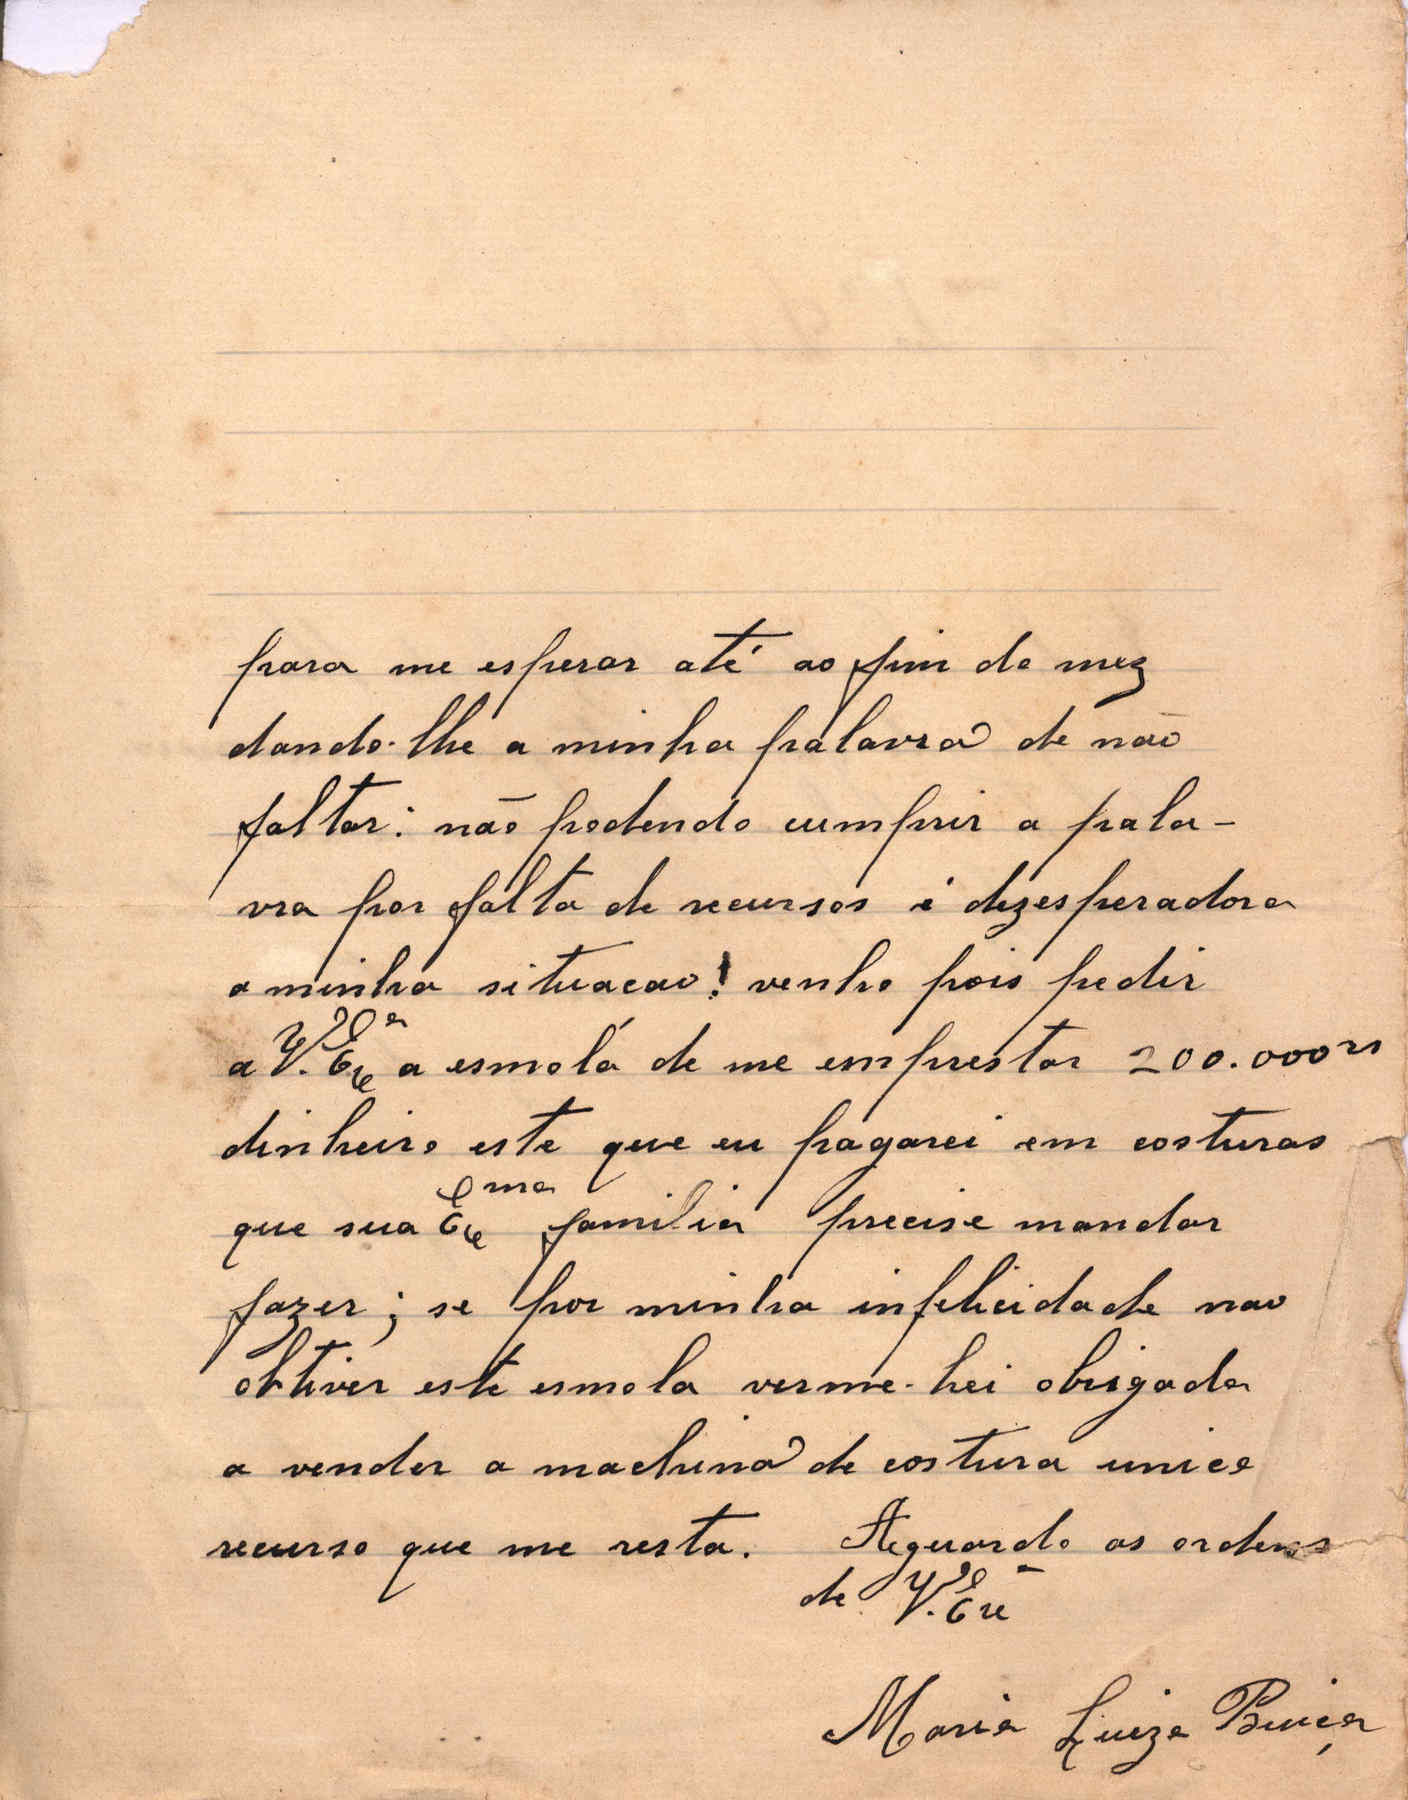 para me esperar até ao fim do mez
dando-lhe a minha palavra de não
faltar: não podendo cumprir a pala-
vra por falta de recursos é dezesperadora
a minha situacao! venho pois pedir
a V. Exª a esmola de me emprestar 200.000rs
dinheiro este que eu pagarei em costuras
que sua Exma familia precise mandar
fazer; se por minha infelicidade nao
obtiver esta esmola verme-hei obrigada
a vender a machina de costura unico
recurso que me resta. Aguardo as ordens
de V. Exª
Maria Luiza Buiça